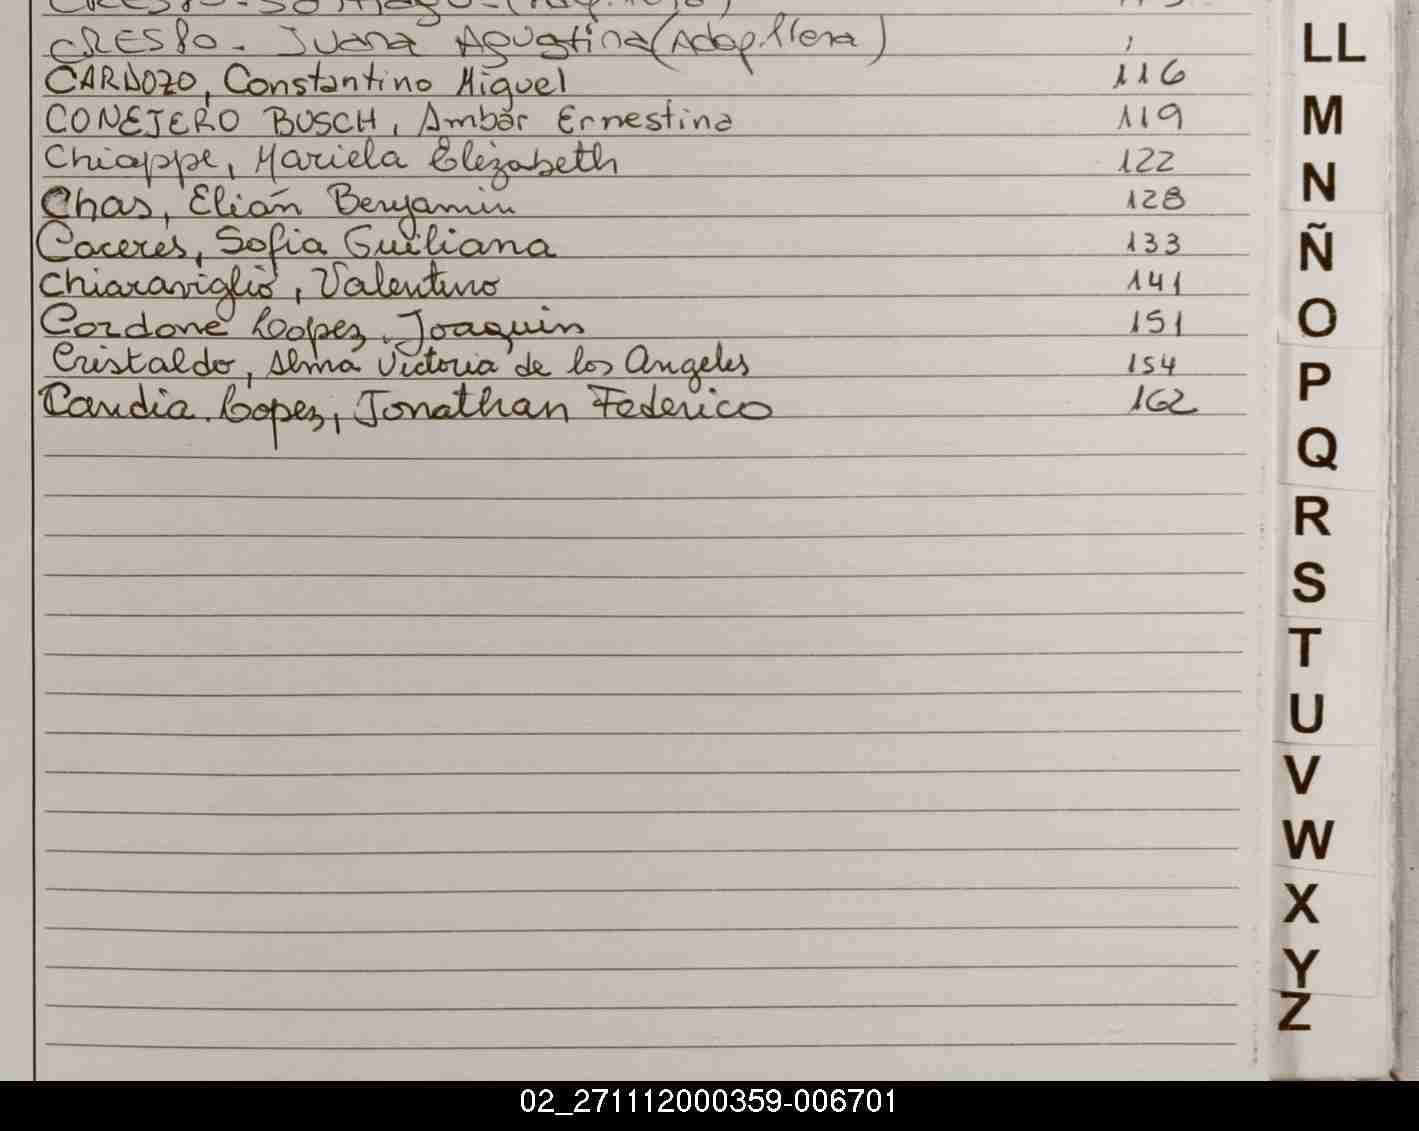 CRESPO. Santiago (Adop.
CRESPO. Juana Agustina (Adop.llena)
CARDOZO, Constantino Miguel 116
CONEJERO BUSCH, Ambar Ernestina 119
Chiappe, Mariela Elizabeth 122
Chas, Elián Benjamin 128
Caceres, Sofia Guiliana 133
Chiaraviglio, Valentino 141
Cordone Lopez, Joaquin 151
Cristaldo, Alma Victoria de los Angeles 154
Candia Lopez, Jonathan Federico 162
LL
M
N
Ñ
O
P
Q
R
S
T
U
V
W
X
Y
Z
02_271112000359-006701